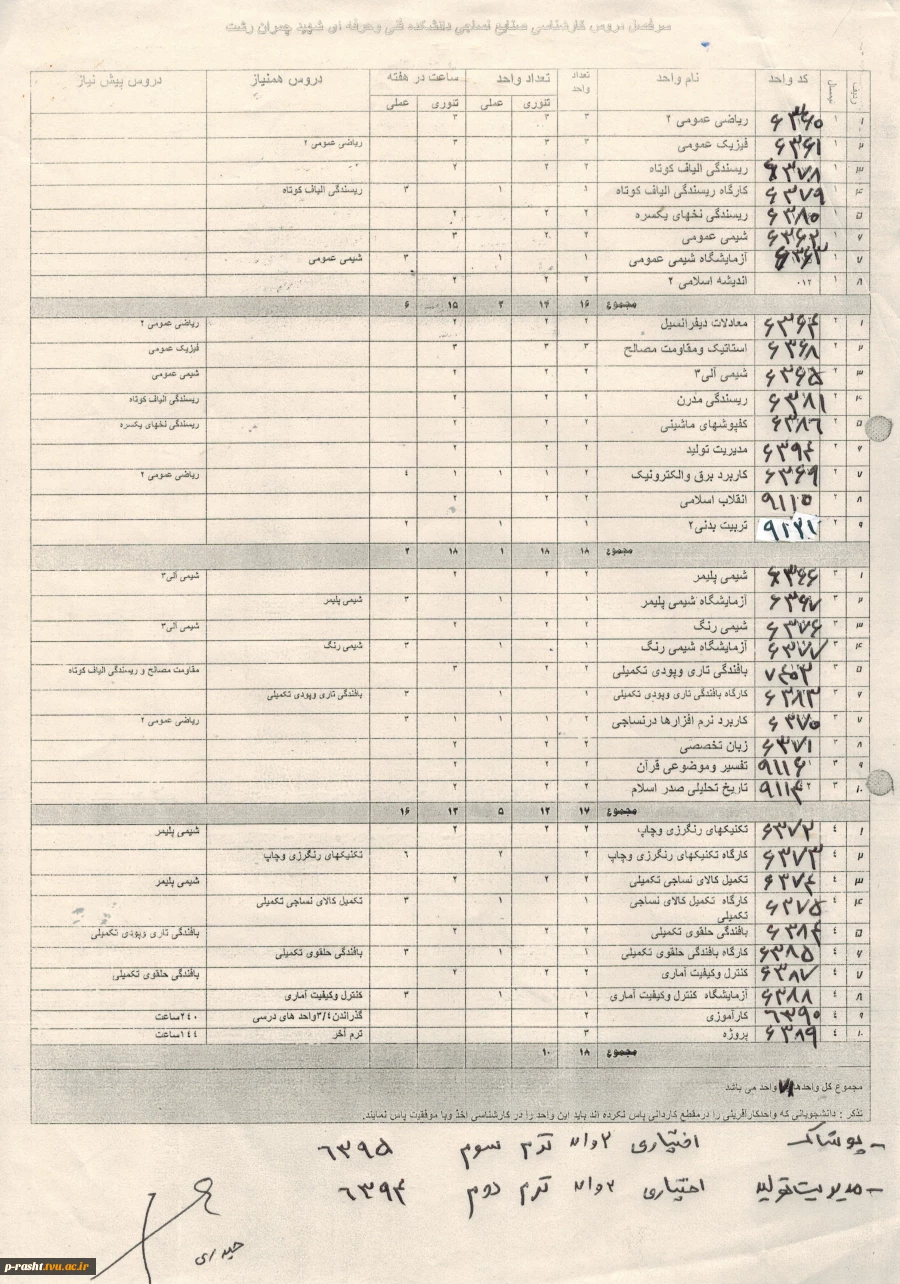 سرفصل دروس کارشناسی صنایع نساجی دانشکده فنی وحرفه ای شهید چمران رشت
ردیف نیمسال کد واحد نام واحد تعداد واحد تعداد واحد ساعت در هفته دروس همنیاز دروس پیش نیاز
تئوری عملی تئوری عملی
۱ ۱ ۶۳۶۰ ریاضی عمومی ۲ ۳ ۳ ۳
۲ ۱ ۶۳۶۱ فیزیک عمومی ۳ ۳ ۳ ریاضی عمومی ۲
۳ ۱ ۶۳۷۸ ریسندگی الیاف کوتاه ۲ ۲ ۲
۴ ۱ ۶۳۷۹ کارگاه ریسندگی الیاف کوتاه ۱ ۱ ۳ ریسندگی الیاف کوتاه
۵ ۱ ۶۳۸۰ ریسندگی نخهای یکسره ۲ ۲ ۲
۶ ۱ ۶۳۶۲ شیمی عمومی ۲ ۲ ۳
۷ ۱ ۶۳۶۳ آزمایشگاه شیمی عمومی ۱ ۱ ۳ شیمی عمومی
۸ ۱ ۰۱۲ اندیشه اسلامی ۲ ۲ ۲ ۲
مجموع ۱۶ ۱۴ ۲ ۱۵ ۶
۱ ۲ ۶۳۶۴ معادلات دیفرانسیل ۲ ۲ ۲ ریاضی عمومی ۲
۲ ۲ ۶۳۶۸ استاتیک ومقاومت مصالح ۳ ۳ ۳ فیزیک عمومی
۳ ۲ ۶۳۶۵ شیمی آلی۳ ۲ ۲ ۲ شیمی عمومی
۴ ۲ ۶۳۸۱ ریسندگی مدرن ۲ ۲ ۲ ریسندگی الیاف کوتاه
۵ ۲ ۶۳۸۶ کفپوشهای ماشینی ۲ ۲ ۲ ریسندگی نخهای یکسره
۶ ۲ ۶۳۹۴ مدیریت تولید ۲ ۲ ۲
۷ ۲ ۶۳۶۹ کاربرد برق والکترونیک ۲ ۱ ۱ ۱ ۴ ریاضی عمومی ۲
۸ ۲ ۹۱۱۵ انقلاب اسلامی ۲ ۲ ۲
۹ ۲ ۹۱۲۱ تربیت بدنی۲ ۱ ۱ ۲
مجموع ۱۸ ۱۸ ۱ ۱۸ ۲
۱ ۳ ۶۳۶۶ شیمی پلیمر ۲ ۲ ۲ شیمی آلی۳
۲ ۳ ۶۳۶۷ آزمایشگاه شیمی پلیمر ۱ ۱ ۳ شیمی پلیمر
۳ ۳ ۶۳۷۶ شیمی رنگ ۲ ۲ ۲ شیمی آلی۳
۴ ۳ ۶۳۷۷ آزمایشگاه شیمی رنگ ۱ ۱ ۳ شیمی رنگ
۵ ۳ بافندگی تاری وپودی تکمیلی ۲ ۲ ۳ مقاومت مصالح و ریسندگی الیاف کوتاه
۶ ۳ ۶۳۸۳ کارگاه بافندگی تاری وپودی تکمیلی ۱ ۱ ۳ بافندگی تاری وپودی تکمیلی
۷ ۳ ۶۳۷۰ کاربرد نرم افزارها درنساجی ۲ ۱ ۱ ۱ ۳ ریاضی عمومی ۲
۸ ۳ ۶۳۷۱ زبان تخصصی ۲ ۲ ۲
۹ ۳ ۹۱۱۶ تفسیر وموضوعی قرآن ۲ ۲ ۲
۱۰ ۳ ۹۱۱۴ تاریخ تحلیلی صدر اسلام ۲ ۲ ۲
مجموع ۱۷ ۱۲ ۵ ۱۳ ۱۶
۱ ۴ ۶۳۷۲ تکنیکهای رنگرزی وچاپ ۲ ۲ ۲ شیمی پلیمر
۲ ۴ ۶۳۷۳ کارگاه تکنیکهای رنگرزی وچاپ ۲ ۲ ۶ تکنیکهای رنگرزی وچاپ
۳ ۴ ۶۳۷۴ تکمیل کالای نساجی تکمیلی ۲ ۲ ۲ شیمی پلیمر
۴ ۴ ۶۳۷۵ کارگاه تکمیل کالای نساجی تکمیلی ۱ ۱ ۳ تکمیل کالای نساجی تکمیلی
۵ ۴ ۶۳۸۴ بافندگی حلقوی تکمیلی ۲ ۲ ۲ بافندگی تاری وپودی تکمیلی
۶ ۴ ۶۳۸۵ کارگاه بافندگی حلقوی تکمیلی ۱ ۱ ۳ بافندگی حلقوی تکمیلی
۷ ۴ ۶۳۸۷ کنترل وکیفیت آماری ۲ ۲ ۲ بافندگی حلقوی تکمیلی
۸ ۴ ۶۳۸۸ آزمایشگاه کنترل وکیفیت آماری ۱ ۱ ۳ کنترل وکیفیت آماری
۹ ۴ ۶۳۹۰ کارآموزی ۲ گذراندن۳/۴واحد های درسی ۲۴۰ساعت
۱۰ ۴ ۶۳۸۹ پروژه ۳ ترم آخر ۱۴۴ساعت
مجموع ۱۸ ۱۰
مجموع کل واحدها ۷۱ واحد می باشد
تذکر : دانشجویانی که واحدکارآفرینی را درمقطع کاردانی پاس نکرده اند باید این واحد را در کارشناسی اخذ وبا موفقیت پاس نمایند.
- پوشاک اختیاری ۲ واحد ترم سوم ۶۳۹۵
- مدیریت تولید اختیاری ۲ واحد ترم دوم ۶۳۹۴
حیدری
p-rasht.tvu.ac.ir